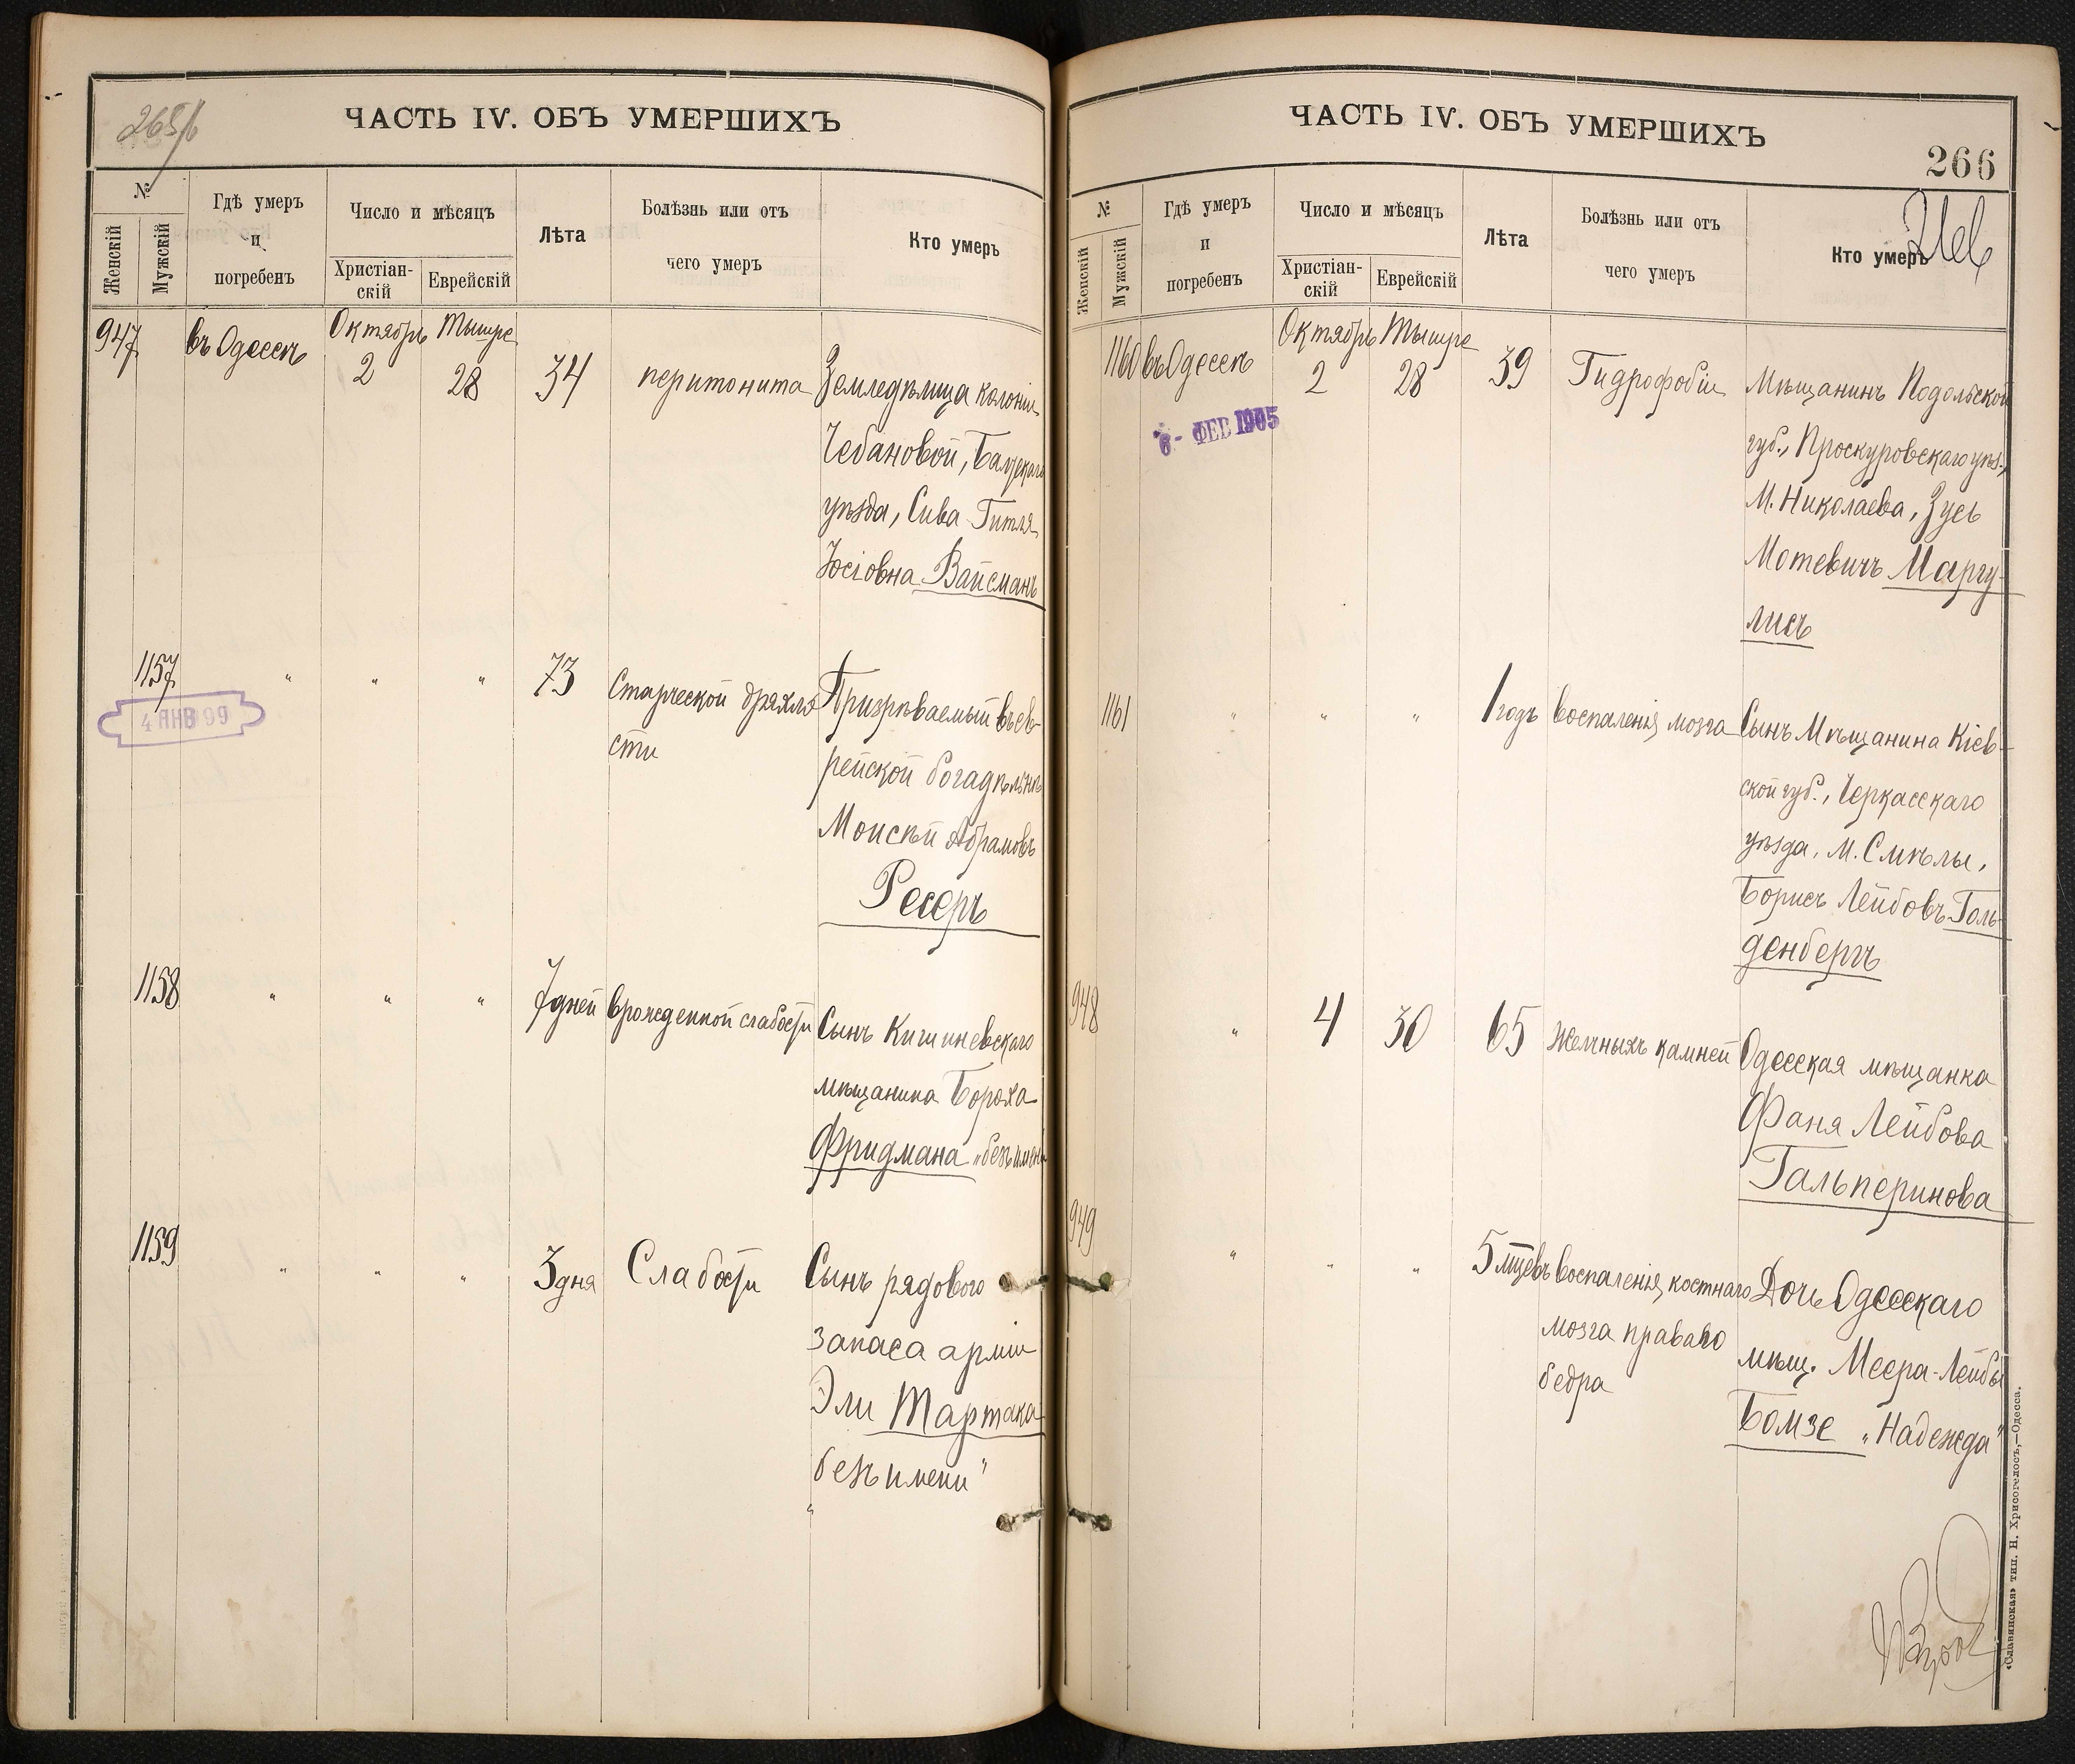 265/б
ЧАСТЬ IV. ОБЪ УМЕРШИХЪ
№
Женскій
Мужскій
Гдѣ умеръ
и
погребенъ
Число и мѣсяцъ
Христіан-
скій
Еврейскій
Лѣта
Болѣзнь или отъ
чего умеръ
Кто умеръ
947 въ Одессѣ Октябрь Тышре
2 28 34 перитонита Земледѣлица колоніи
Чебановой, Балтскаго
уѣзда, Сива-Гитля
Іосіовна Вайсманъ
1157 " " " 73 Старческой дряхло Призрѣваемый въ ев-
сти рейской богадѣльнѣ
4 ЯНВ 99
Моисѣй Абрамовъ
Ресеръ
1158 " " " 7 дней врожденной слабости Сынъ Кишиневскаго
мѣщанина Бороха
Фридмана „безъ имени
1159 " " " 3 дня Слабости Сынъ рядового
запаса арміи
Эли Тартака
безъ имени"
"
ЧАСТЬ IV. ОБЪ УМЕРШИХЪ
266
№
Женскій
Мужскій
Гдѣ умеръ
и
погребенъ
Число и мѣсяцъ
Христіан-
скій
Еврейскій
Лѣта
Болѣзнь или отъ
чего умеръ
Кто умеръ
1160 въ Одессѣ Октябрь Тышре
2 28 39 Гидрофобіи Мѣщанинъ Подольской
6- ФЕВ 1905
губ., Проскуровскаго уѣз.,
М. Николаева, Зусь
Мотевичъ Маргу-
лисъ
1161 " " " 1 годъ воспаленія мозга Сынъ Мѣщанина Кіев-
ской губ., Черкасскаго
уѣзда, М. Смѣлы,
Борисъ Лейбовъ Голь-
денбергъ
948 " 4 30 65 Желчныхъ камней Одесская мѣщанка
Фаня Лейбова
Гальперинова
949 " " " 5 мцевъ воспаленія костнаго Дочь Одесскаго
мозга праваго мѣщ. Меера-Лейбы
бедра Бомзе „Надежда"
«Славянская» тип. Н. Хрисогелосъ,—Одесса.